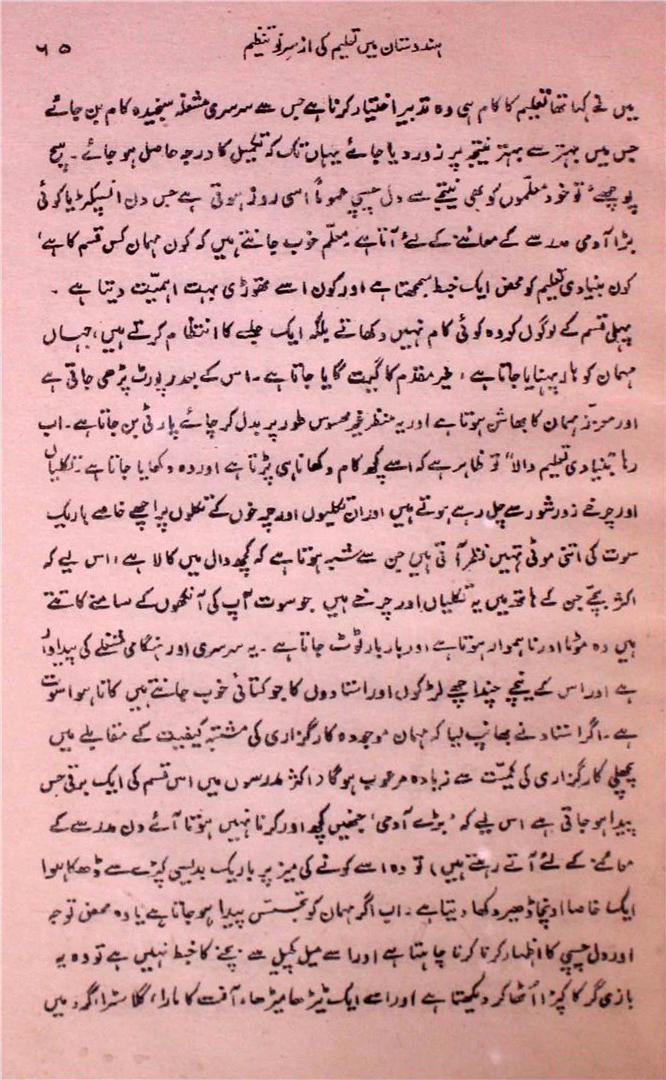 ہندوستان میں تعلیم کی از سرِ نو تنظیم ۶۵
میں نے کہا تھا تعلیم کا کام ہی وہ تدبیر اختیار کرنا ہے جس سے سرسری مشغلہ سنجیدہ کام بن جائے
جس میں بہتر سے بہتر نتیجہ پر زور دیا جائے یہاں تک کہ تکمیل کا درجہ حاصل ہو جائے ۔ سچ
پوچھیے تو خود معلّموں کو بھی نتیجے سے دل چسپی عموماً اسی روز ہوتی ہے جس دن انسپکٹر یا کوئی
بڑا آدمی مدرسے کے معائنے کے لئے آتا ہے ۔ معلّم خوب جانتے ہیں کہ کون مہمان کس قسم کا ہے ،
کون بنیادی تعلیم کو محض ایک خبط سمجھتا ہے اور کون اسے تھوڑی بہت اہمیّت دیتا ہے ۔
پہلی قسم کے لوگوں کو وہ کوئی کام نہیں دکھاتے بلکہ ایک جلسے کا انتظام کرتے ہیں ، جہاں
مہمان کو ہار پہنایا جاتا ہے ، خیر مقدم کا گیت گایا جاتا ہے ۔ اس کے بعد رپورٹ پڑھی جاتی ہے
اور معزز مہمان کا بھاشن ہوتا ہے اور یہ منظر غیر محسوس طور پر بدل کر چائے پارٹی بن جاتا ہے ۔ اب
رہا "بنیادی تعلیم والا" تو ظاہر ہے کہ اسے کچھ کام دکھانا ہی پڑتا ہے اور وہ دکھایا جاتا ہے ۔ تکلیاں
اور چرخے زور شور سے چل رہے ہوتے ہیں اور ان تکلیوں اور چرخوں کے تکلوں پر اچھے خاصے باریک
سوت کی اتنی موٹی تہیں نظر آتی ہیں جن سے شبہ ہوتا ہے کہ کچھ دال میں کالا ہے ، اس لیے کہ
اکثر بچّے جن کے ہاتھ میں یہ تکلیاں اور چرخے ہیں جو سوت آپ کی آنکھوں کے سامنے کاتتے
ہیں وہ موٹا اور ناہموار ہوتا ہے اور بار بار ٹوٹ جاتا ہے ۔ یہ سرسری اور ہنگامی مشغلے کی پیداوار
ہے اور اس کے نیچے چند اچھے لڑکوں اور استادوں کا جو کتائی خوب جانتے ہیں کاتا ہوا سوت
ہے ۔ اگر استاد نے بھانپ لیا کہ مہمان موجودہ کارگزاری کی مشتبہ کیفیت کے مقابلے میں
پچھلی کارگزاری کی کمیّت سے زیادہ مرعوب ہوگا ( اکثر مدرسوں میں اس قسم کی ایک برقی حس
پیدا ہو جاتی ہے اس لیے کہ ' بڑے آدمی ' جنھیں کچھ اور کرنا نہیں ہوتا آئے دن مدرسے کے
معائنے کے لئے آتے رہتے ہیں ) تو وہ اسے کونے کی میز پر باریک بدیسی کپڑے سے ڈھکا ہوا
ایک خاصا اونچا ڈھیر دکھا دیتا ہے ۔ اب اگر مہمان کو تجسّس پیدا ہو جاتا ہے یا وہ محض توجہ
اور دل چسپی کا اظہار کرنا کرنا چاہتا ہے اور اسے میل کچیل سے بچنے کا خبط نہیں ہے تو وہ یہ
بازی گر کا کپڑا اٹھا کر دیکھتا ہے اور اسے ایک ٹیڑھا میڑھا ، آفت کا مارا ، گلا سڑا ، گرد میں